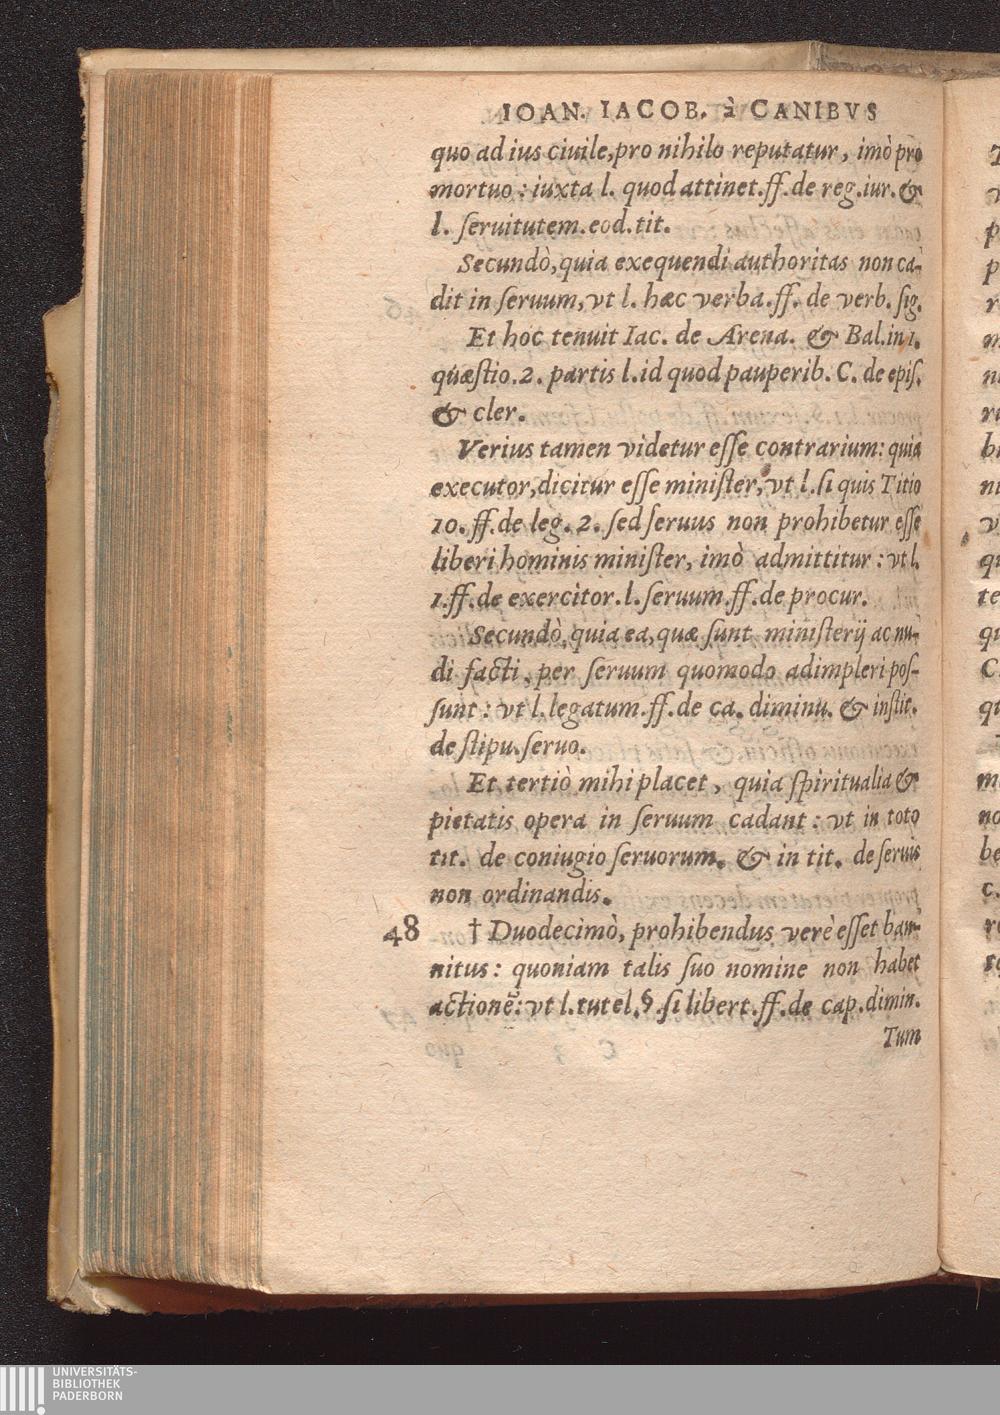 IOAN. IACOB. à CANIBVS
quo ad ius ciuile,pro nihilo reputatur, imò pro
mortuo: iuxta l. quod attinet.ff.de reg.iur.&
l. ſeruitutem.eod.tit.
Secundò,quia exequendi authoritas non ca-
dit in ſeruum, vt l. hæc verba.ff. de verb. ſig.
Et hoc tenuit Iac. de Arena. & Bal.in 1.
quæſtio.2. partis l.id quod pauperib. C. de epiſ.
& cler.
Verius tamen videtur eſſe contrarium: quia
executor,dicitur eſſe miniſter, vt l.ſi quis Titio
10. ff.de leg. 2. ſed ſeruus non prohibetur eſſe
liberi hominis miniſter, imò admittitur: vt l.
1.ff.de exercitor.l.ſeruum.ff.de procur.
Secundò,quia ea,quæ ſunt miniſterij ac nu-
di facti, per ſeruum quomodo adimpleri poſ-
ſunt: vt l.legatum.ff.de ca. diminu. & inſtit.
de ſtipu.ſeruo.
Et tertiò mihi placet, quia ſpiritualia &
pietatis opera in ſeruum cadant: vt in toto
tit. de coniugio ſeruorum. & in tit. de ſeruis
non ordinandis.
48 † Duodecimò, prohibendus verè eſſet ban-
nitus: quoniam talis ſuo nomine non habet
actionẽ: vt l.tutel.§.ſi libert.ff.de cap.dimin.
Tum
UNIVERSITÄTS-
BIBLIOTHEK
PADERBORN